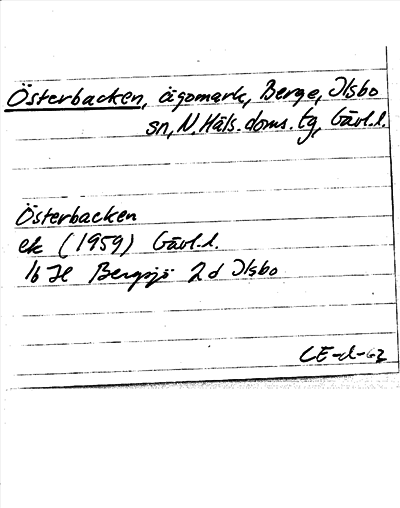 Österbacken, ägomark, Berge, Ilsbo
sn, N. Häls. doms. tg, Gävl.l.
Österbacken
ek (1959) Gävl.l.
16 H Bergsjö 2d Ilsbo